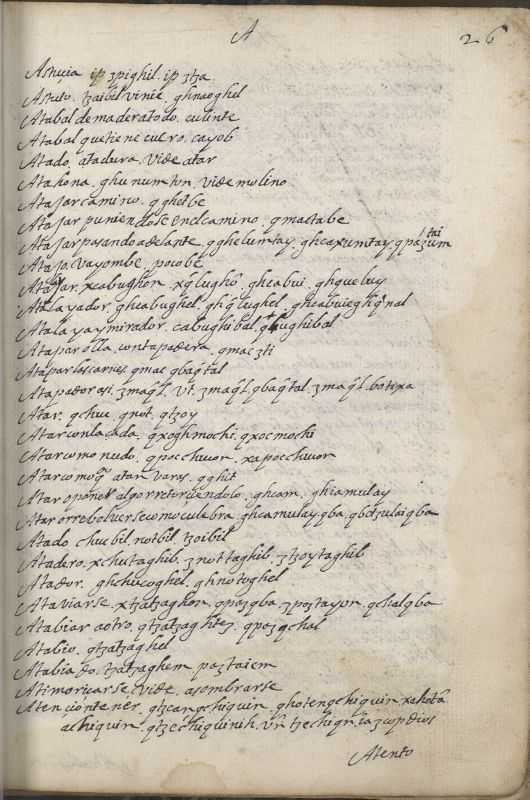 A 26
Astuçia ip ʒpighil. ip ʒtʒa.
Astuto. tʒaibil vinic. ghnaoghel
Atabal de madera todo. culinte
Atabal que tiene cuero. cayob
Atado, atadura. vide atar
Atahona. ghununton. vide molino
Atajar camino. qghetbe
Atajar puniendose en el camino. qmactabe
Atajar pasando adelante. qgheluntay. ghcaxuntay. qpaʒumtai
Atajo. vayombe. pocobe
Atajar. xcabughon. xqlughõ. ghcabui. ghqueluy
Atalayador, ghcabughel. ghq̃lughel. ghcabuieghq̃nal
Atalaya y mirador. cabughibal. qlughibal
Atapar olla. con tapadera. qmacʒti
Atapar las carnes. qmac qbaq̃tal
Atapador asi. ʒmaq̃l. vt. ʒmaq̃l. qbaq̃tal. ʒmaq̃l. botixa
Atar. qchuc. qnot. qtʒoy
Atar con laçada. qxoghmochi. qxocmochi
Atar como nudo. qpocchuon. xapocchuon
Atar como q̃ atan varas. qghit
Atar o poner algo rretorciendolo. ghcam. ghiamulay
Atar o rrebolverse como culebra. ghcamulay. qba. qbetʒulai qba
Atado chucbil. notbil. tʒoibil
Atadero. xchutaghib. ʒnottaghib. ʒtʒoytaghib
Atador. ghchucoghel. ghnotoghel
Ataviarse. xtʒatʒaghon. qpaʒqba. ʒpaʒtayon. qchalqba
Atabiar a otro. qtʒatʒaghteʒ. qpaʒ qchal
Atabio. qtʒatʒaghel
Atabiado. tʒatʒaghem paʒtaiem
Atimoriçarse. vide. asombrarse
Atençion tener. qtʒcangchiquin. ghotengchiquin xahotã
achiquin. qtʒechiquinih. vñ tʒechiqñ. ta ʒcop dios
Atento